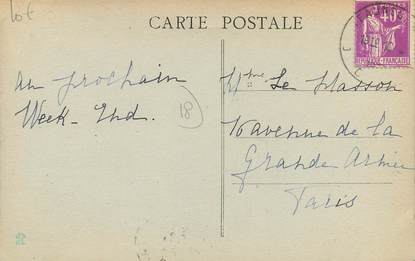 lot
CARTE POSTALE
40c
RÉPUBLIQUE FRANÇAISE
au prochain
Week-End.
18
Mme Le Masson
avenue de la
Grande Armée
Paris